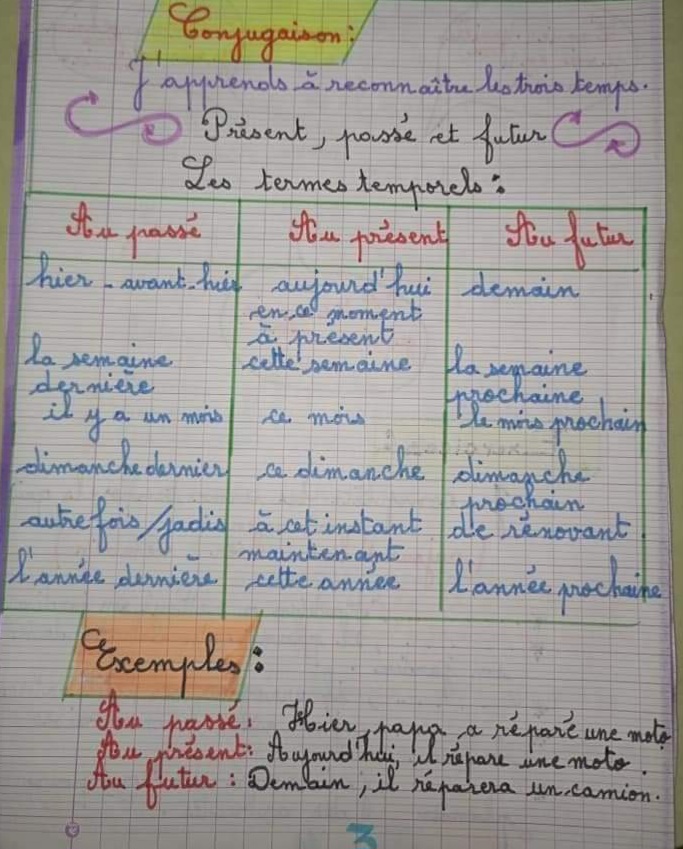 Conjugaison:
J'apprends à reconnaître les trois temps.
Présent, passé et futur
Les termes temporels:
Au passé Au présent Au futur
hier - avant-hier aujourd'hui demain
en ce moment
à présent
la semaine cette semaine la semaine
dernière prochaine
il y a un mois ce mois le mois prochain
dimanche dernier ce dimanche dimanche
prochain
autrefois/jadis à cet instant de rénovant
maintenant
l'année dernière cette année l'année prochaine
Exemples:
Au passé: Hier, papa a réparé une moto
Au présent: Aujourd'hui, il répare une moto.
Au futur: Demain, il réparera un camion.
3